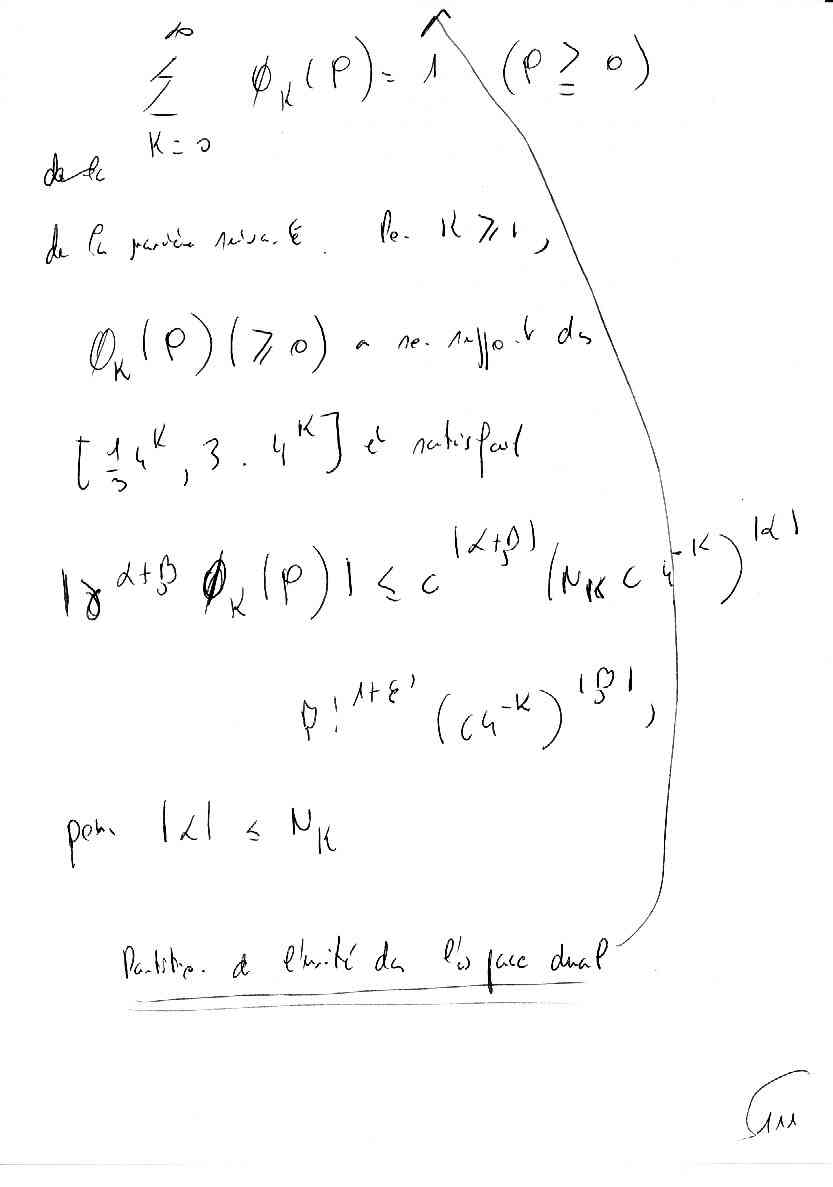 ∞
∑ ϕ_K(ρ) = 1 (ρ ≥ 0)
K = 0
de la
de la manière suivante. Pour K ≥ 1,
ϕ_K(ρ) (≥ 0) a son support dans
[1/3 4^K, 3 . 4^K] et satisfait
|∂^{α+β} ϕ_K(ρ)| ≤ C^{|α+β|} (N_K C 4^{-K})^{|α|}
β!^{1+ε'} (C4^{-K})^{|β|},
pour |α| ≤ N_K
Partition de l'unité dans l'espace dual
111